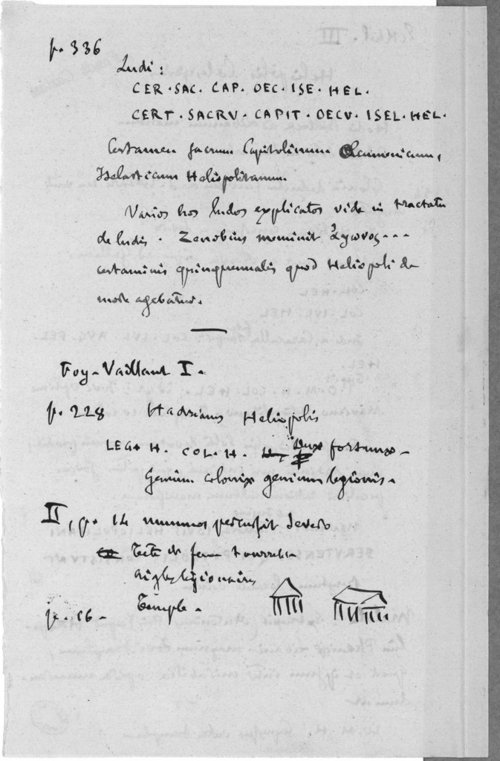 p. 336
Ludi:
CER·SAC. CAP. OEC. ISE·HEL.
CERT. SACRU·CAPIT. OECU. ISEL. HEL.
Certamen sacrum Capitolinum Oecumenicum,
Iselasticum Heliopolitanum
Varios hos ludos explicatos vide in tractatu
de ludis. Zenobius meminit Ἀγωνος...
certaminis quinquennalis quod Heliopoli de
more agebatur.
Foy-Vaillant I.
p. 228 Hadrianus Heliopolis
LEG. H. COL. H. Duæ fortunæ
Genium coloniæ genium legionis.
II, p. 14 nummos percussit Severo
Tete de femme tourrelée
Aigles légionnaires
p. 16. Temple.